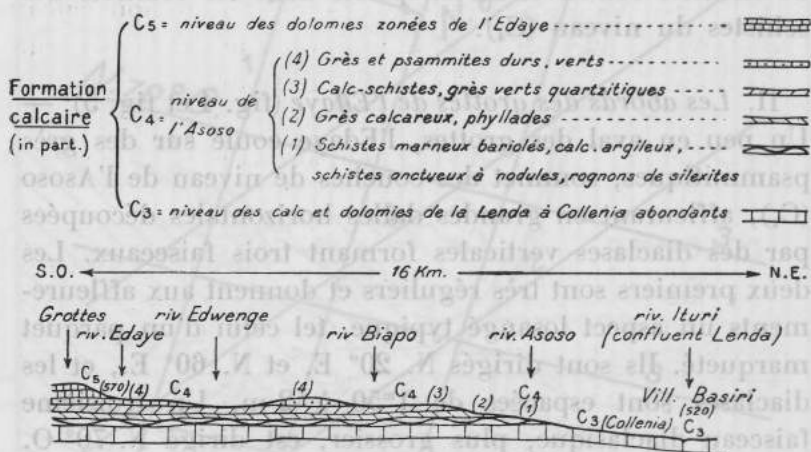 C5 = niveau des dolomies zonées de l'Edaye
Formation calcaire (in part.)
C4 = niveau de l'Asoso
(4) Grès et psammites durs, verts
(3) Calc-schistes, grès verts quartzitiques
(2) Grès calcareux, phyllades
(1) Schistes marneux bariolés, calc. argileux,
schistes onctueux à nodules, rognons de silexites
C3 = niveau des calc et dolomies de la Lenda à Collenia abondants
S.O. 16 Km. N.E.
Grottes riv. Edaye riv. Edwenge riv. Biapo riv. Asoso riv. Ituri (confluent Lenda)
Vill. Basiri
C5 (570) (4) C4 (4) C4 (3) (2) C4 (1) C3 (Collenia) (520) C3